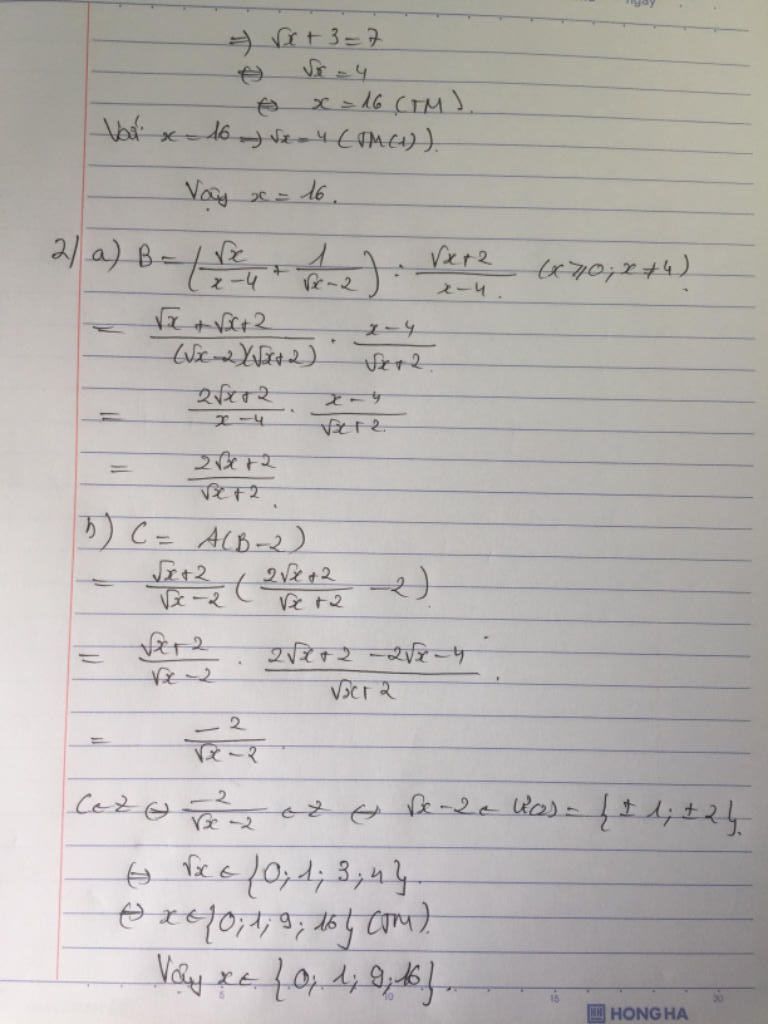 ngày
=> √x + 3 = 7
<=> √x = 4
<=> x = 16 (TM).
Với x = 16 => √x = 4 (TM(1)).
Vậy x = 16.
2/ a) B = (√x/(x-4) + 1/(√x-2)) : (√x+2)/(x-4) (x ≥ 0; x ≠ 4).
= (√x + √x+2)/((√x-2)(√x+2)) · (x-4)/(√x+2).
= (2√x+2)/(x-4) · (x-4)/(√x+2).
= (2√x+2)/(√x+2).
b) C = A(B-2)
= (√x+2)/(√x-2) ((2√x+2)/(√x+2) - 2)
= (√x+2)/(√x-2) · (2√x+2-2√x-4)/(√x+2).
= -2/(√x-2).
C ∈ Z <=> -2/(√x-2) ∈ Z <=> √x-2 ∈ Ư(2) = {±1; ±2}.
<=> √x ∈ {0; 1; 3; 4}.
<=> x ∈ {0; 1; 9; 16} (TM).
Vậy x ∈ {0; 1; 9; 16}.
5 10 15 20
HONG HA